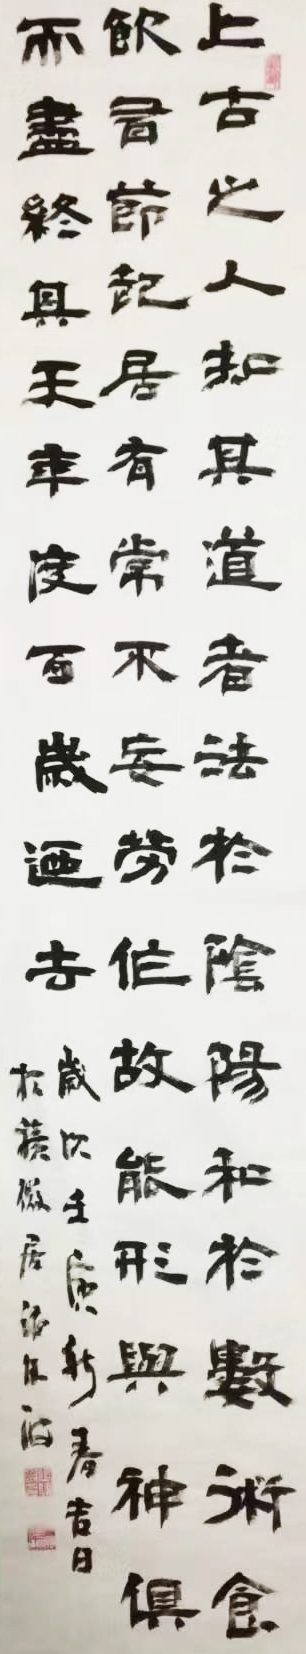 上古之人知其道者法於陰陽和於數術食
飲有節起居有常不妄勞作故能形與神俱
而盡終其天年度百歲迺去
歲次壬寅新春吉日
於 微居